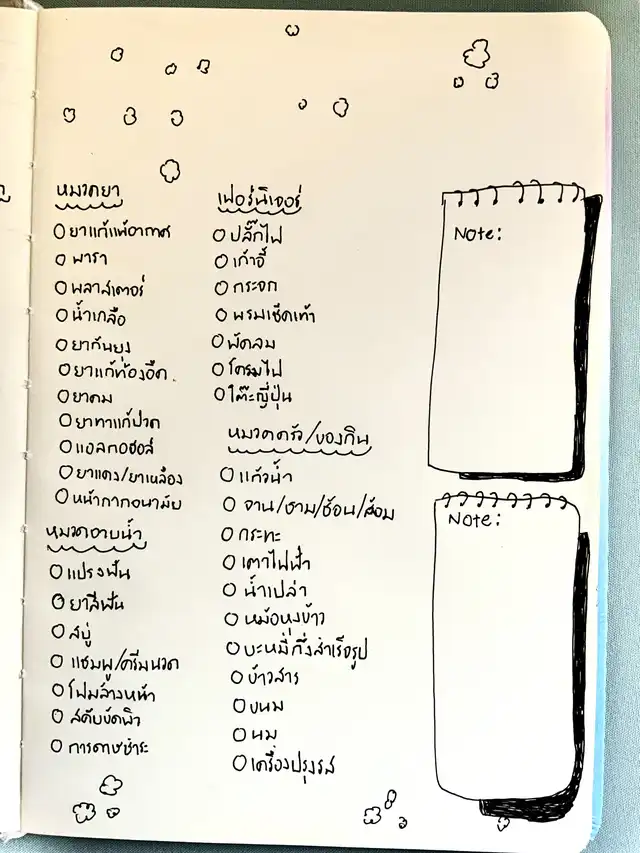 หมวดยา
ยาแก้แพ้อากาศ
พารา
พลาสเตอร์
น้ำเกลือ
ยากันยุง
ยาแก้ท้องอืด
ยาดม
ยาทาแก้ปวด
แอลกอฮอล์
ยาแดง/ยาเหลือง
หน้ากากอนามัย
หมวดอาบน้ำ
แปรงฟัน
ยาสีฟัน
สบู่
แชมพู/ครีมนวด
โฟมล้างหน้า
สครับขัดผิว
กระดาษชำระ
เฟอร์นิเจอร์
ปลั๊กไฟ
เก้าอี้
กระจก
พรมเช็ดเท้า
พัดลม
โคมไฟ
โต๊ะญี่ปุ่น
หมวดครัว/ของกิน
แก้วน้ำ
จาน/ชาม/ช้อน/ส้อม
กระทะ
เตาไฟฟ้า
น้ำเปล่า
หม้อหุงข้าว
บะหมี่กึ่งสำเร็จรูป
ข้าวสาร
ขนม
นม
เครื่องปรุงรส
Note:
Note: